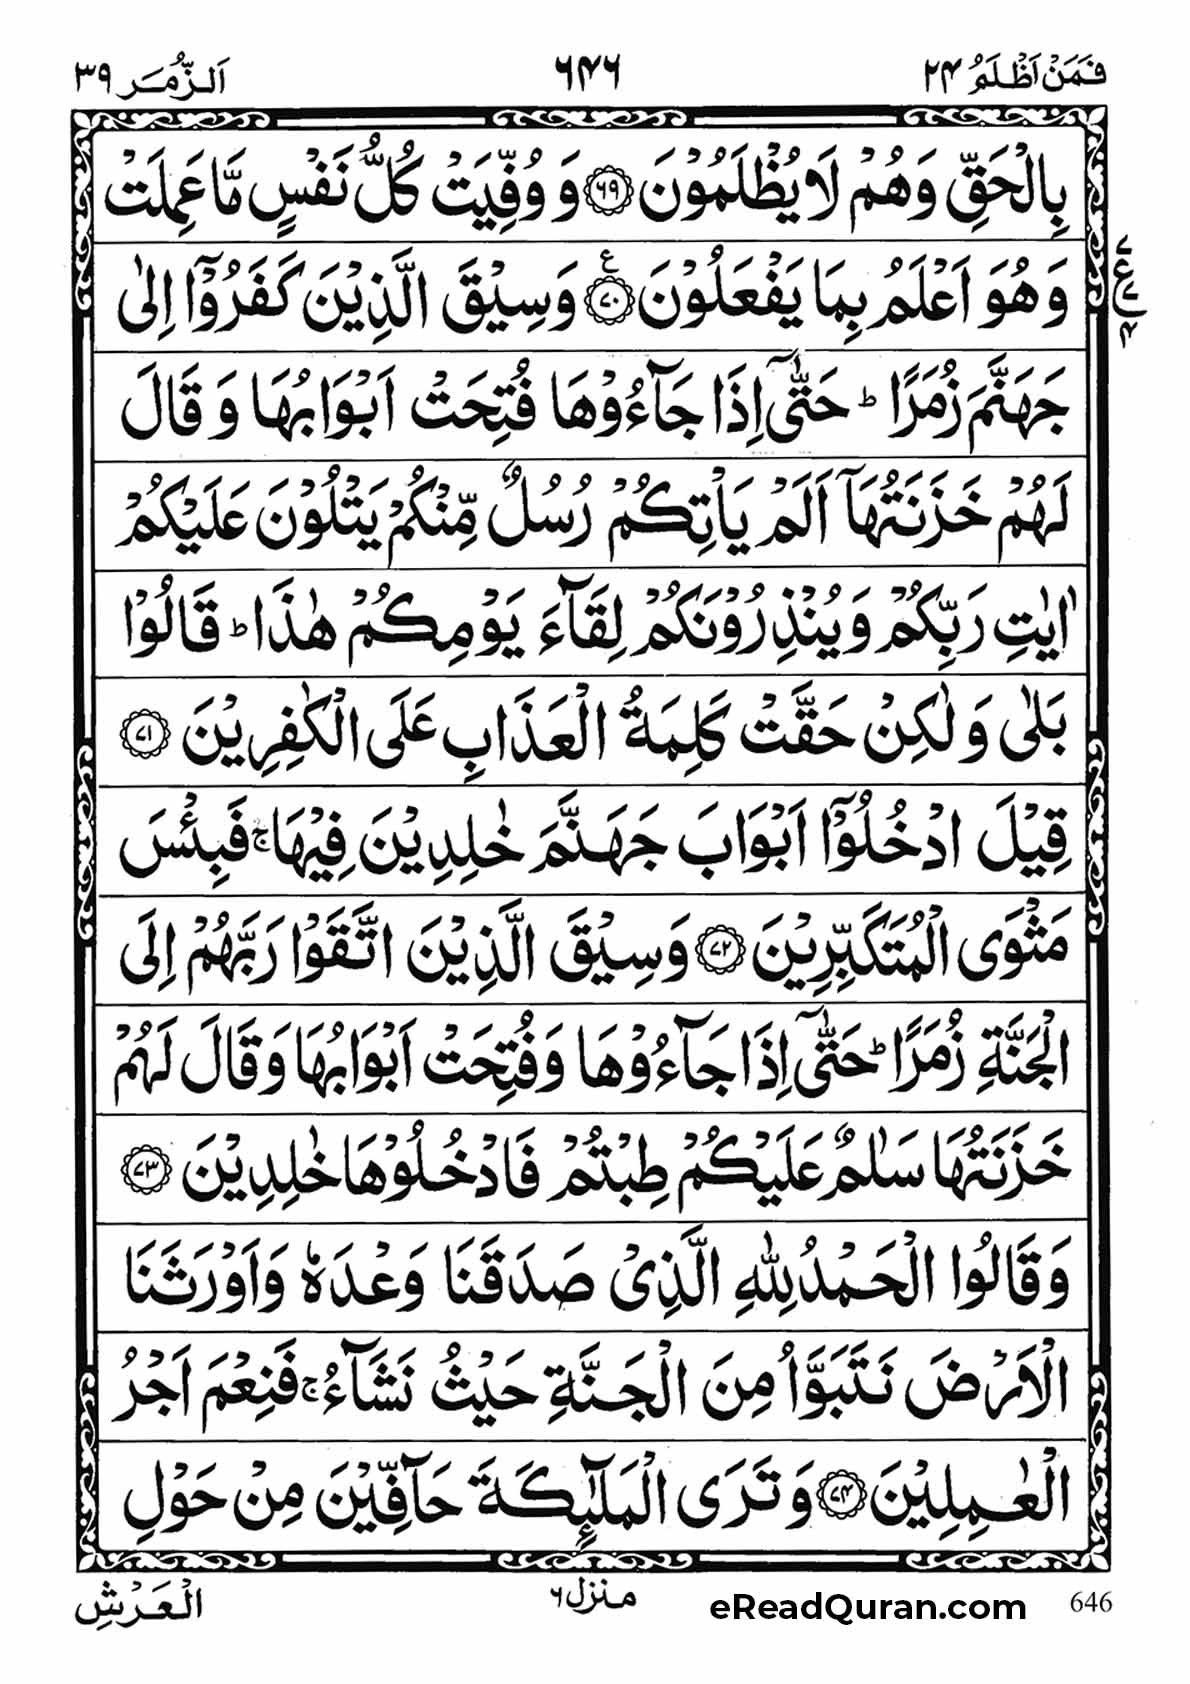 فَمَنْ اَظْلَمُ ۲۴ ۶۴۶ اَلزُّمَر ۳۹
بِالْحَقِّ وَهُمْ لَا يُظْلَمُوْنَ ﴿۶۹﴾ وَ وُفِّيَتْ كُلُّ نَفْسٍ مَّا عَمِلَتْ
وَهُوَ اَعْلَمُ بِمَا يَفْعَلُوْنَ ﴿۷۰﴾ ع وَسِيْقَ الَّذِيْنَ كَفَرُوْۤا اِلٰى
جَهَنَّمَ زُمَرًا ؕ حَتّٰۤى اِذَا جَآءُوْهَا فُتِحَتْ اَبْوَابُهَا وَ قَالَ
لَهُمْ خَزَنَتُهَاۤ اَلَمْ يَاْتِكُمْ رُسُلٌ مِّنْكُمْ يَتْلُوْنَ عَلَيْكُمْ
اٰيٰتِ رَبِّكُمْ وَيُنْذِرُوْنَكُمْ لِقَآءَ يَوْمِكُمْ هٰذَا ؕ قَالُوْا
بَلٰى وَ لٰكِنْ حَقَّتْ كَلِمَةُ الْعَذَابِ عَلَى الْكٰفِرِيْنَ ﴿۷۱﴾
قِيْلَ ادْخُلُوْۤا اَبْوَابَ جَهَنَّمَ خٰلِدِيْنَ فِيْهَا ۚ فَبِئْسَ
مَثْوَى الْمُتَكَبِّرِيْنَ ﴿۷۲﴾ وَسِيْقَ الَّذِيْنَ اتَّقَوْا رَبَّهُمْ اِلَى
الْجَنَّةِ زُمَرًا ؕ حَتّٰۤى اِذَا جَآءُوْهَا وَفُتِحَتْ اَبْوَابُهَا وَقَالَ لَهُمْ
خَزَنَتُهَا سَلٰمٌ عَلَيْكُمْ طِبْتُمْ فَادْخُلُوْهَا خٰلِدِيْنَ ﴿۷۳﴾
وَقَالُوا الْحَمْدُ لِلّٰهِ الَّذِيْ صَدَقَنَا وَعْدَهٗ وَاَوْرَثَنَا
الْاَرْضَ نَتَبَوَّاُ مِنَ الْجَنَّةِ حَيْثُ نَشَآءُ ۚ فَنِعْمَ اَجْرُ
الْعٰمِلِيْنَ ﴿۷۴﴾ وَ تَرَى الْمَلٰٓئِكَةَ حَآفِّيْنَ مِنْ حَوْلِ
الْعَرْشِ
منزل ۶
eReadQuran.com
646